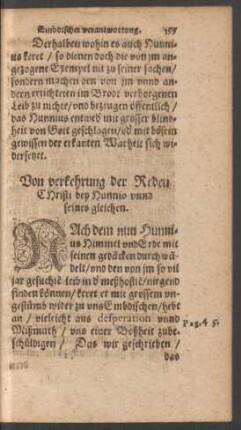 Embdischer verantwortung. 355
Derhalben wohin es auch Hunni-
us keret / so dienen doch die von jm an-
gezogene Exempel nit zu seiner sachen /
sondern machen den von jm vnnd an-
dern ertichteten im Brode verborgenen
Leib zu nichte / vnd bezeugen öffentlich /
das Hunnius entwed mit grosser blind-
heit von Gott geschlagen / od mit bösem
gewissen der erkanten Warheit sich wi-
dersetzet.
Von verkehrung der Reden
CHristi bey Hunnio vnnd
seines gleichen.
NAch dem nun Hunni-
us Himmel vnd Erde mit
seinen gedäcken durch wā-
delt / vnd den von jm so vil
jar gesuchtē leib in d meßhostiē / nirgend
finden können / keret er mit grossem vn-
gestümb wider zu vns Embdischen / hebt
an / vieleicht aus desperation vnnd
Mißmuth / vns einer Boßheit zube-
schüldigen / Das wir geschrieben /
Pag. 4 5.
das